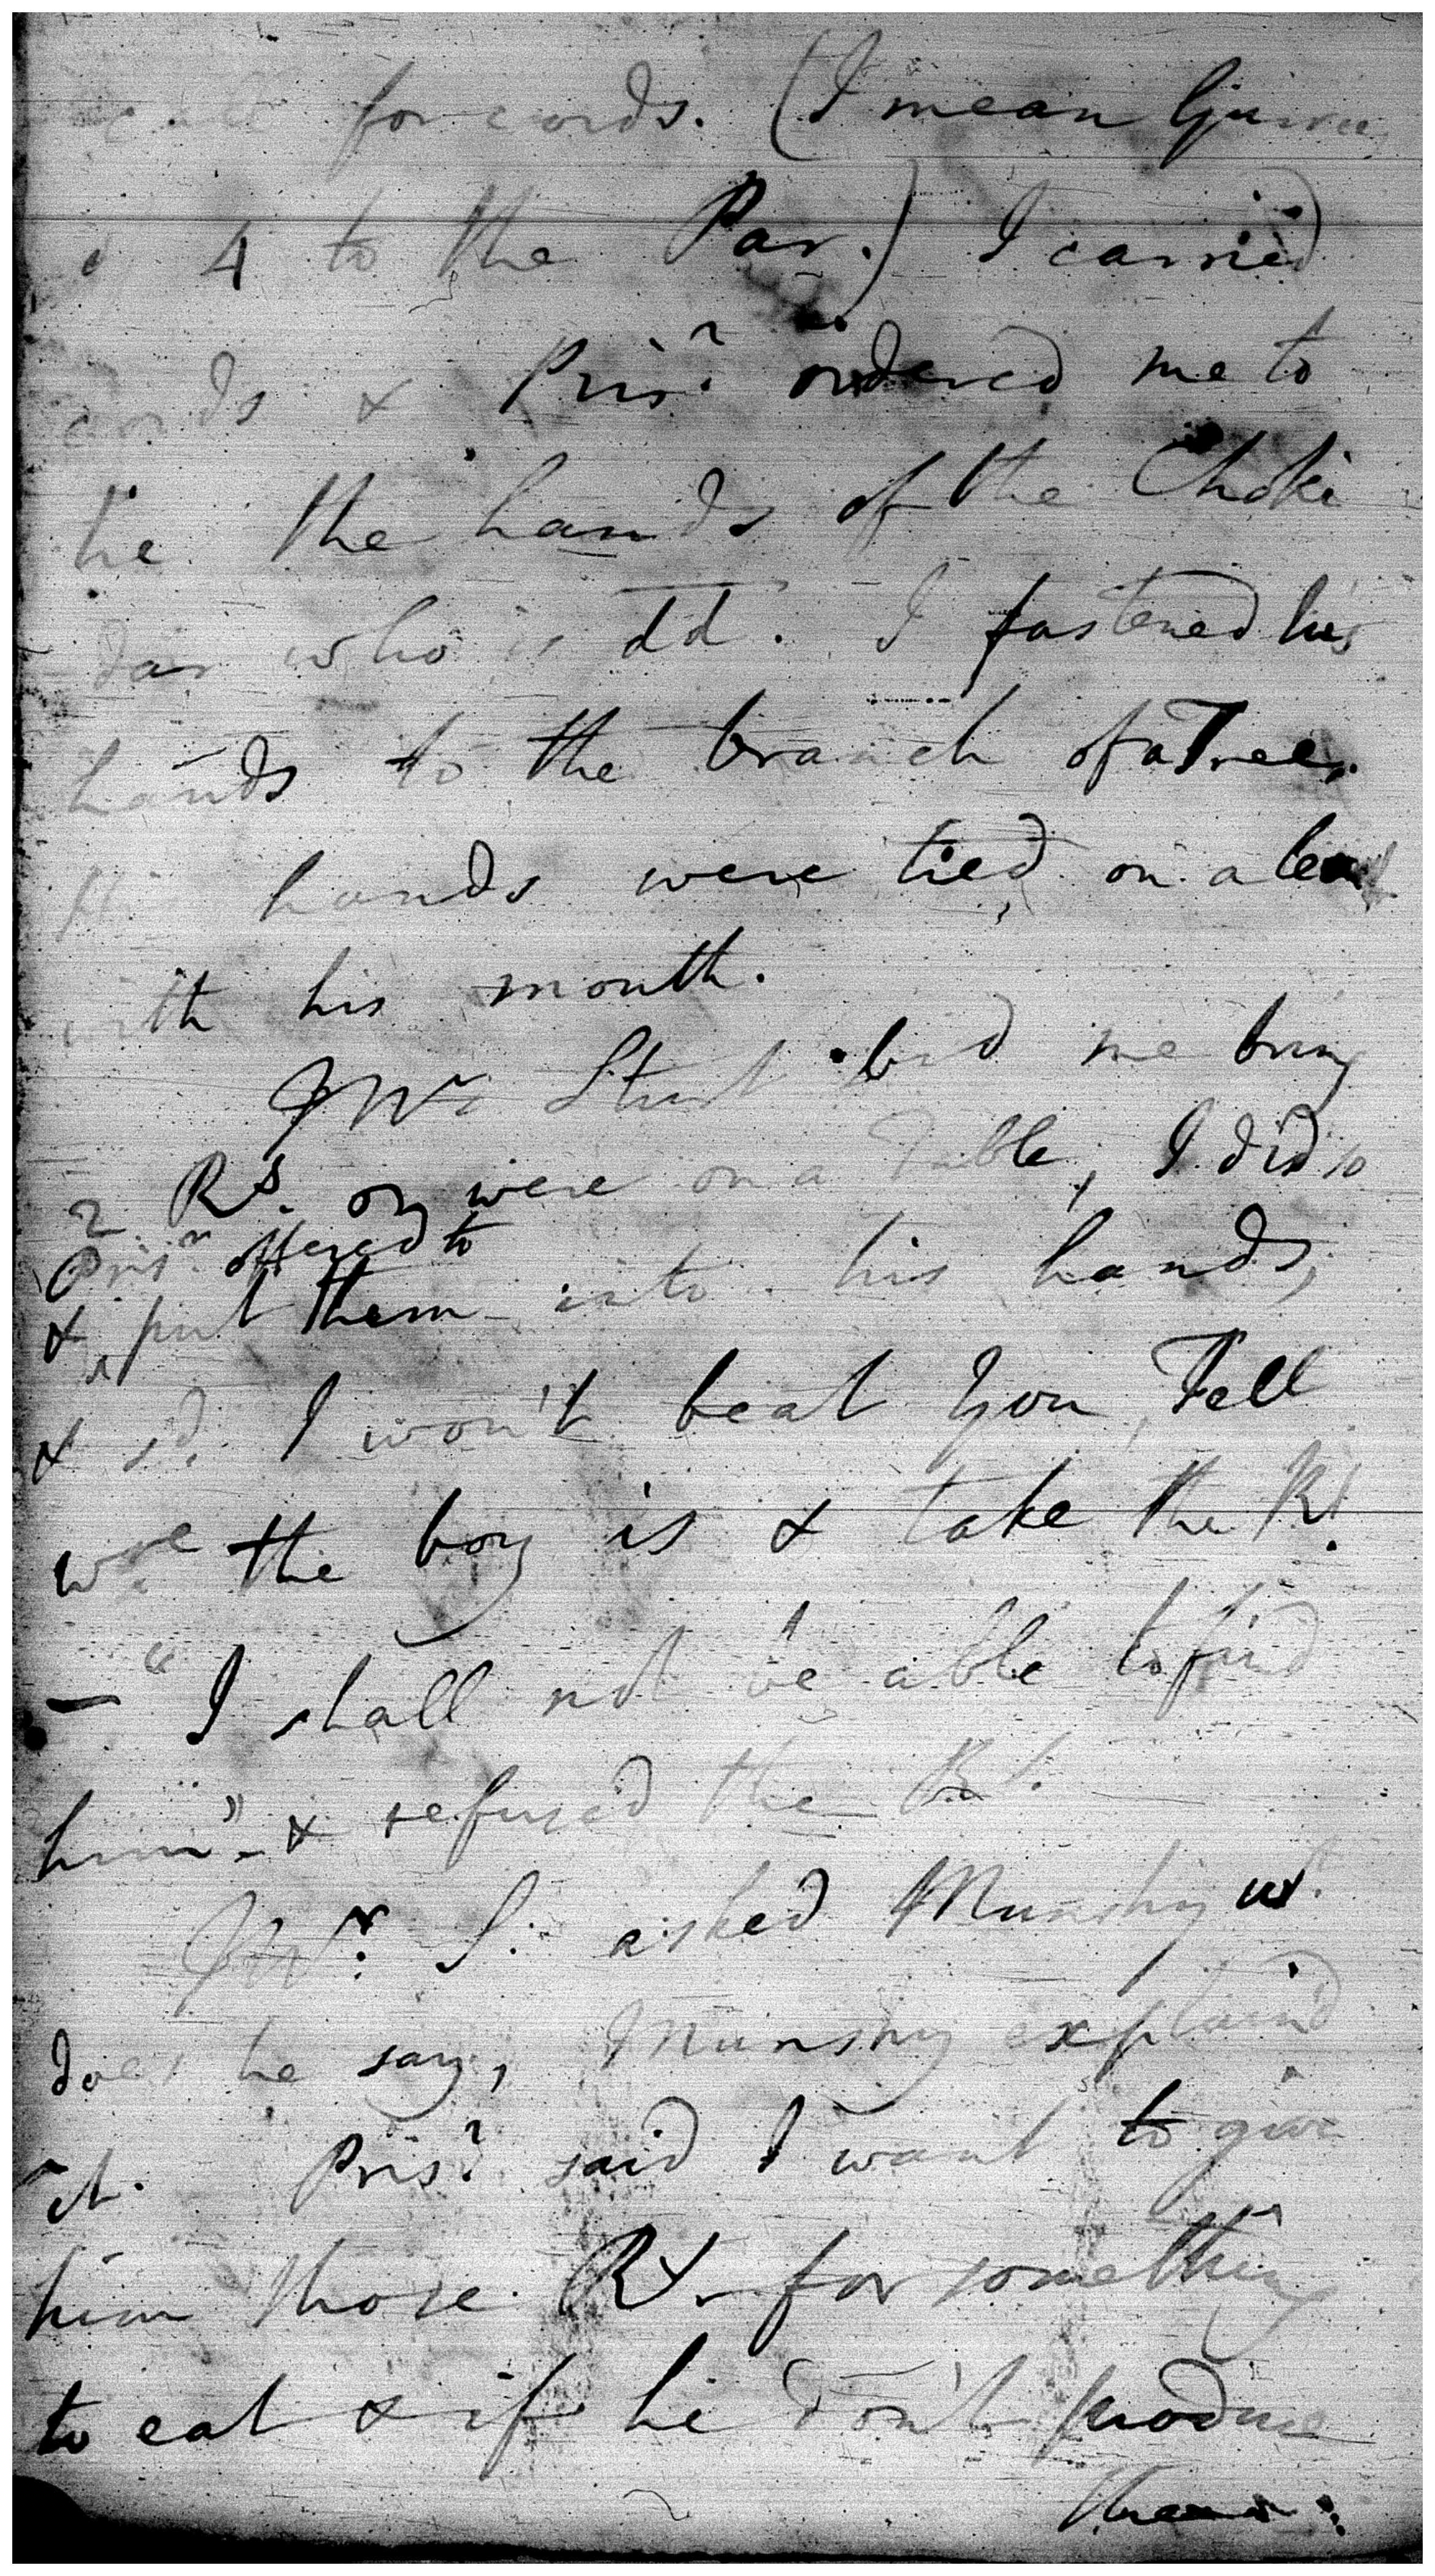 call for cords. (I mean Gunee
d 4 to the Par.) I carried
cords & Prisr ordered me to
tie the hands of the Choki
dar who is dd. I fastened his
hands to the branch of a Tree.
His hands were tied on a level
with his mouth.
Mr Sturt bid me bring
2 Rs. on were on a Table, I did so
Prisr offered to
& put them into his hands,
& sd. I won't beat you, Tell
were the boy is & take the Rs.
— "I shall not be able to find
him" & refused the Rs.
Mr. S. asked Munshy wt.
does he say, Munshy explain'd
it. Prisr. said I want to give
him those Rs. for something
to eat & if he don't produce